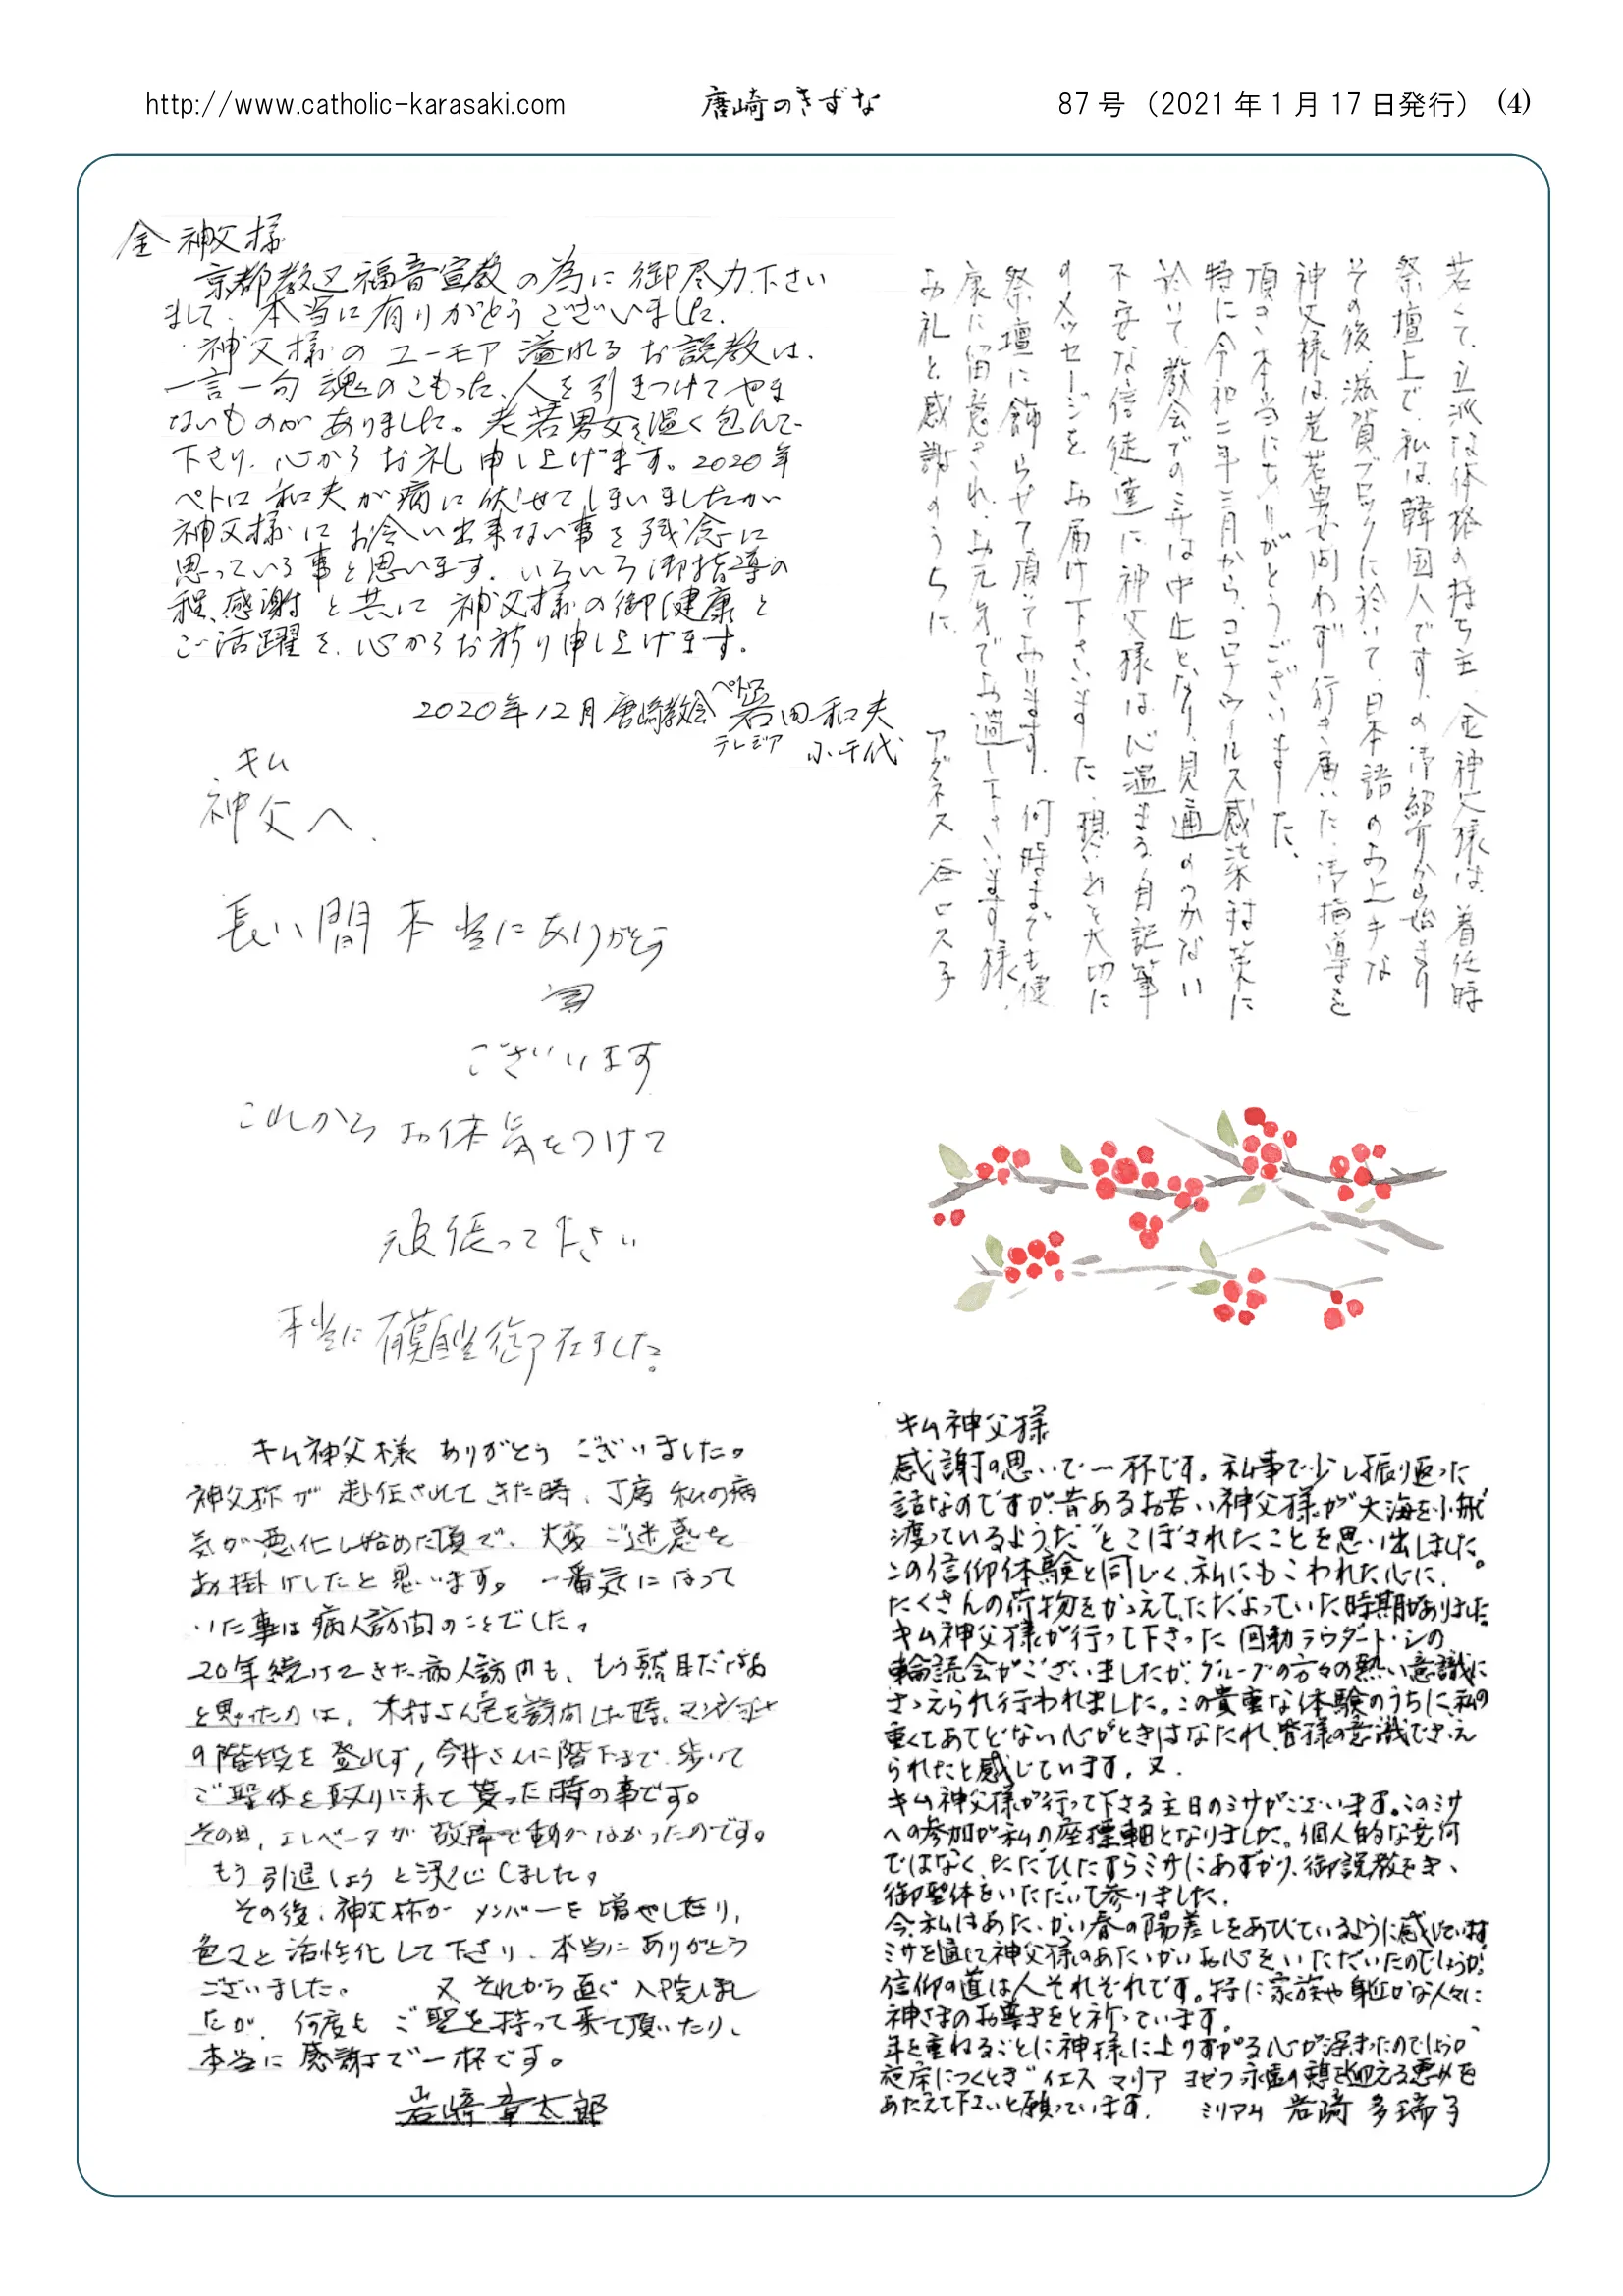 http://www.catholic-karasaki.com
唐崎のきずな
87号（2021年1月17日発行） (4)
金神父様
京都教区福音宣教の為に御尽力下さい
まして、本当に有りがとうございました。
神父様のユーモア溢れるお説教は、
一言一句魂のこもった、人を引きつけてやま
ないものがありました。老若男女を温く包んで
下さり、心からお礼申し上げます。2020年
ペトロ和夫が病に伏せてしまいましたが
神父様にお会い出来ない事を残念に
思っている事と思います。いろいろ御指導の
程、感謝と共に神父様の御健康と
ご活躍を、心からお祈り申し上げます。
2020年12月唐崎教会 ペトロ 岩田和夫
テレジア 小千代
若くて、立派な体格の持ち主、金神父様は、着任時
祭壇上で、私は韓国人です、の御紹介から始まり
その後、滋賀ブロックに於いて、日本語のお上手な
神父様は老若男女問わず行き届いた御指導を
頂き本当に有りがとうございました。
特に令和二年三月から、コロナウィルス感染対策に
於いて、教会でのミサは中止となり、見通のつかない
不安な信徒達に、神父様は、心温まる自記筆
のメッセージをお届け下さいました、それを大切に
祭壇に飾らせて頂いております。何時までも健
康に留意され、お元気でお過し下さいます様、
お礼と感謝のうちに、
アグネス 谷口ス子
キム
神父へ、
長い間本当にありがとう
ございます
これからお体気をつけて
頑張って下さい
本当に有難う御座ました。
キム神父様ありがとうございました。
神父様が赴任されてきた時、丁度私の病
気が悪化し始めた頃で、大変ご迷惑を
お掛けしたと思います。一番気になって
いた事は病人訪問のことでした。
20年続けてきた病人訪問も、もう駄目だなあ
と思ったのは、木村さん宅を訪問した時、マンション
の階段を登れず、今井さんに階下まで歩いて
ご聖体を取りに来て貰った時の事です。
その日、エレベータが故障で動かなかったのです。
もう引退しようと決心しました。
その後、神父様がメンバーを増やしたり、
色々と活性化して下さり、本当にありがとう
ございました。 又それから直ぐ入院しまし
たが、何度もご聖を持って来て頂いたり、
本当に感謝で一杯です。
岩崎章太郎
キム神父様
感謝の思いで一杯です。私事で少し振り返った
話なのですが、昔あるお若い神父様が"大海を小舟で
渡っているようだ"とこぼされたことを思い出しました。
この信仰体験と同じく、私にもこわれた心に、
たくさんの荷物をかゝえて、ただよっていた時期がありました。
キム神父様が行って下さった回勅ラウダート・シの
輪読会がございましたが、グループの方々の熱い意識に
さゝえられ行われました。この貴重な体験のうちに、私の
重くてあてどない心がときはなたれ、皆様の意識でさゝえ
られたと感じています。又、
キム神父様が行って下さる主日のミサがございます。このミサ
への参加が私の座標軸となりました。個人的な
ではなく、ただひたすらミサにあずかり、御説教をきゝ、
御聖体をいただいて参りました。
今、私はあたゝかい春の陽差しをあびているように感じています
ミサを通して神父様のあたゝかいお心をいただいたのでしょうか。
信仰の道は人それぞれです。特に家族や身近かな人々に
神さまのお導きをと祈っています。
年を重ねるごとに神様によりすがる心が深まったのでしょうか、
夜床につくとき"イエス マリア ヨゼフ 永遠の を迎える恵みを
あたえて下さいと願っています。 ミリアム 岩崎 多瑞子